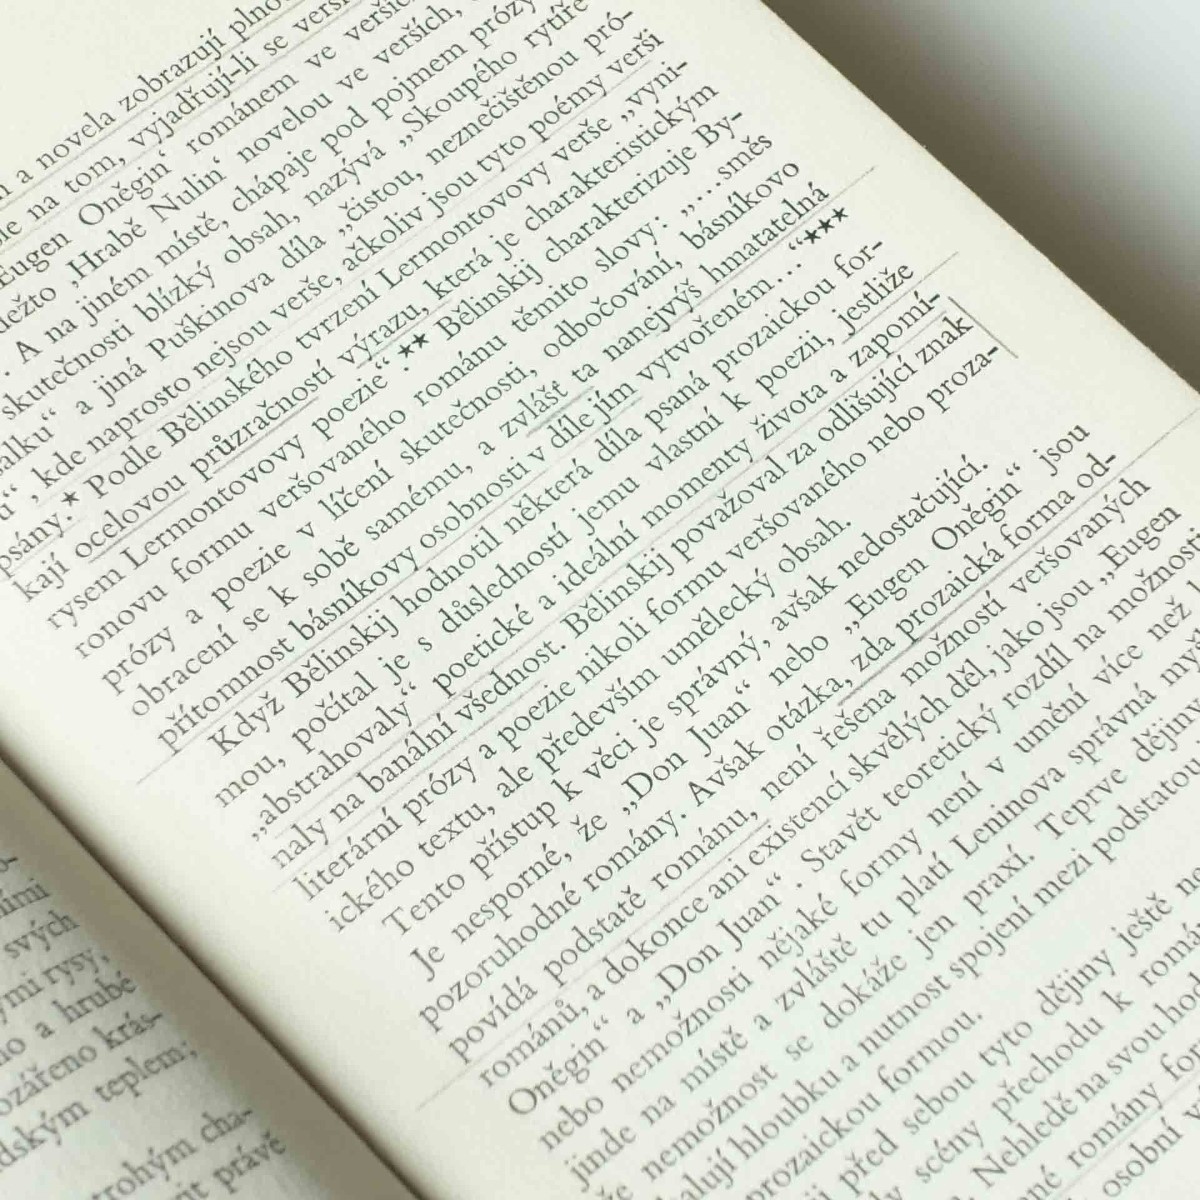 svých
ými rysy,
o a hrubé
ozářeno krás-
dským teplem,
trohým cha-
právě
a novela zobrazují plno
na tom, vyjadřují-li se verši
Eugen Oněgin‘ románem ve verších,
‚Hrabě Nulin‘ novelou ve verších,
A na jiném místě, chápaje pod pojmem prózy
skutečnosti blízký obsah, nazývá „Skoupého rytíře
a jiná Puškinova díla „čistou, neznečištěnou pró-
kde naprosto nejsou verše, ačkoliv jsou tyto poémy verši
psány.* Podle Bělinského tvrzení Lermontovovy verše „vyni-
kají ocelovou průzračností výrazu, která je charakteristickým
rysem Lermontovovy poezie“.** Bělinskij charakterizuje By-
ronovu formu veršovaného románu těmito slovy: „...směs
prózy a poezie v líčení skutečnosti, odbočování, básníkovo
obracení se k sobě samému, a zvlášť ta nanejvýš hmatatelná
přítomnost básníkovy osobnosti v díle jím vytvořeném...“***
Když Bělinskij hodnotil některá díla psaná prozaickou for-
mou, počítal je s důsledností jemu vlastní k poezii, jestliže
„abstrahovaly“ poetické a ideální momenty života a zapomí-
naly na banální všednost. Bělinskij považoval za odlišující znak
literární prózy a poezie nikoli formu veršovaného nebo proza-
ického textu, ale především umělecký obsah.
Tento přístup k věci je správný, avšak nedostačující.
Je nesporné, že „Don Juan“ nebo „Eugen Oněgin“ jsou
pozoruhodné romány. Avšak otázka, zda prozaická forma od-
povídá podstatě románu, není řešena možností veršovaných
románů, a dokonce ani existencí skvělých děl, jako jsou „Eugen
Oněgin“ a „Don Juan“. Stavět teoretický rozdíl na možnosti
nebo nemožnosti nějaké formy není v umění více než
jinde na místě a zvláště tu platí Leninova správná
nemožnost se dokáže jen praxí. Teprve dějiny
hloubku a nutnost spojení mezi podstatou
prozaickou formou.
před sebou tyto dějiny ještě
scény přechodu k
Nehledě na svou
romány
osobní